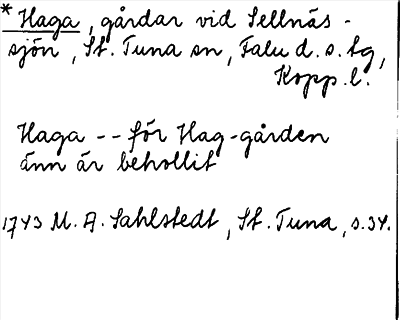 * Haga, gårdar vid Sellnäs-
sjön, St. Tuna sn, Falu d. s. tg,
Kopp. l.
Haga -- för Hag-gården
änn är behollit
1743 M. A. Sahlstedt, St. Tuna, s. 34.